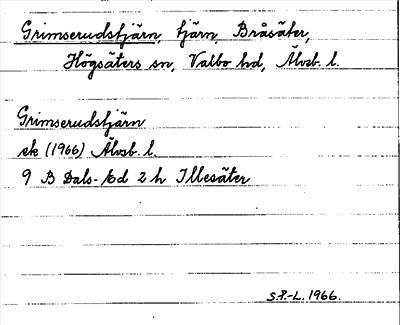 Grimserudstjärn, tjärn, Bråsäter,
Högsäters sn, Valbo hd, Älvsb. l.
Grimserudstjärn
ek (1966) Älvsb. l.
9 B Dals-Ed 2 h Illesäter
S.P.-L. 1966.